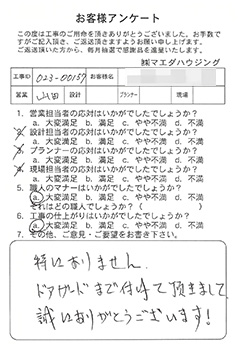 お客様アンケート
この度は工事のご用命を頂きありがとうございました。お手数で
すがご記入頂き、ご返送頂きますようお願い申し上げます。
ご返送頂いた方から、毎月抽選で感謝品を進呈いたします。
㈱マエダハウジング
工事ID 023-00159 お客様名
営業 山田 設計 プランナー 現場
1. 営業担当者の応対はいかがでしたでしょうか?
a. 大変満足 b. 満足 c. やや不満 d. 不満
2. 設計担当者の応対はいかがでしたでしょうか?
a. 大変満足 b. 満足 c. やや不満 d. 不満
3. プランナーの応対はいかがでしたでしょうか?
a. 大変満足 b. 満足 c. やや不満 d. 不満
4. 現場担当者の応対はいかがでしたでしょうか?
a. 大変満足 b. 満足 c. やや不満 d. 不満
5. 職人のマナーはいかがでしたでしょうか?
a. 大変満足 b. 満足 c. やや不満 d. 不満
それはどの職人でしょうか? ( )
6. 工事の仕上がりはいかがでしたでしょうか?
a. 大変満足 b. 満足 c. やや不満 d. 不満
7. その他、ご意見・ご要望をお書き下さい。
特にありません。
ドアガードまで付けて頂きまして、
誠にありがとうございます!